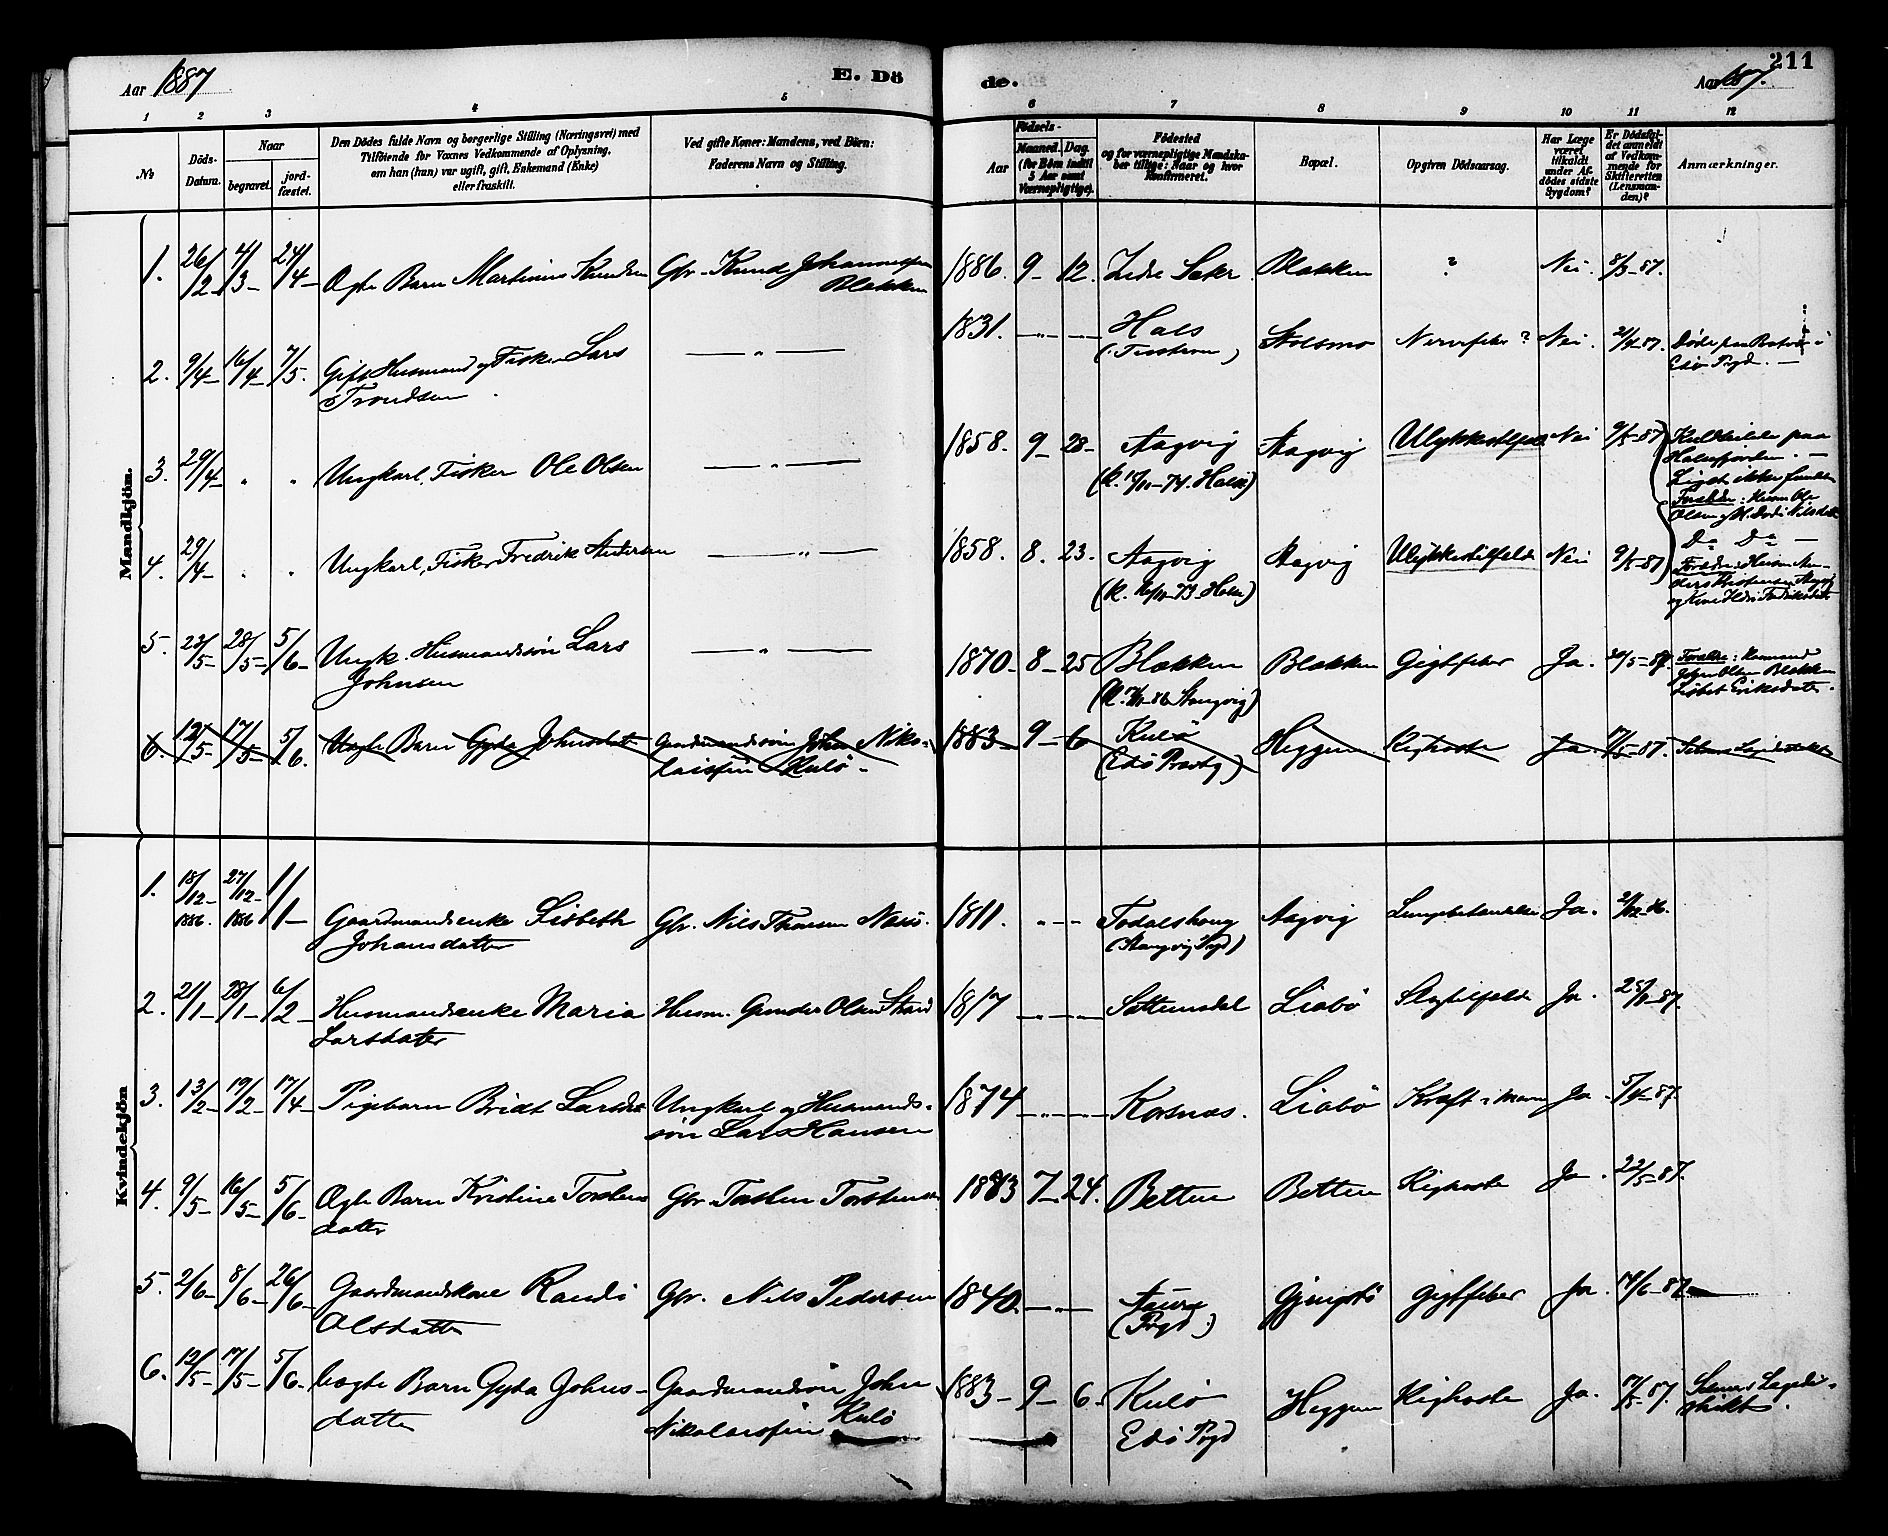 Aar 1887
E. Dö
de.
211
Aar 1887.
1 2 3 4 5 6 7 8 9 10 11 12
№
Döds-Datum.
Naar
begravet.
jord-fæstet.
Den Dödes fulde Navn og borgerlige Stilling (Næringsvei) med
Tilföiende for Voxnes Vedkommende af Oplysning,
om han (hun) var ugift, gift, Enkemand (Enke)
eller fraskilt.
Ved gifte Koner: Mandens, ved Börn:
Faderens Navn og Stilling.
Födsels-
Aar
Maaned. Dag.
(for Börn indtil
5 Aar samt
Værnepligtige).
Födested
og for værnepligtige Mandska-
ber tillige: Naar og hvor
Konfirmeret.
Bopæl.
Opgiven Dödsaarsag.
Har Læge
været
tilkaldt
under Af-
dödes sidste
Sygdom?
Er Dödsfal-
det anmeldt
af Vedkom-
mende for
Skifteretten
(Lensman-
den)?
Anmærkninger.
Mandkjön.
1. 26/2 4/3 24/4 Ægte Barn Martinus Knudsen Gbr. Knud Johannessen Blekken 1886. 9 12. Blekken ? Nei. 8/3-87.
2. 9/4 16/4 7/5. Gift Husmand og Fisker Lars Trondsen 1831. Hals Nervefeber? Nei. 21/4-87. Döde paa
Edö Pgd.
3. 29/4 Ungkarl, Fisker Ole Olsen 1858. 9 28 Aagvig Aagvig Ulykkestilfælde Nei 9/5-87 Kuldseilede paa
Halsefjorden.
Liget ikke funden
Forældre: Husm. Ole
Olsen
(k. -74. Halse)
4. 29/4 Ungkarl, Fisker Fredrik Andersen 1858. 8. 23. Aagvig Aagvig Ulykkestilfælde Nei 9/5-87 Do Do
Forældre: Husm. An-
ders
(k. -73. Halse)
5. 23/5 28/5 5/6 Ungk. Husmandssön Lars Johnsen 1870 8 25 Blekken Blekken Gigtfeber Ja. -87. Forældre: Husmand
John Olsen Blekken
Eriksdatter.
(k. -86 Stangvig)
6. 12/5 17/5 5/6. Uægte Barn Gyda Johnsdat. Gaardmandssön John Niko-
laissen Kulö. 1883 9 6 Kulö (Edö Præstg) Heggem Kighoste Ja. 17/5-87.
Kvindekjön
1. 18/12 1886. 27/12 1886 1/1 Gaardmandsenke Lisbeth Johansdatter Gbr. Nils 1811. Todalshoug (Stangvig Pgd) Aagvig Lungebetændelse Ja.
2. 21/1 28/1 6/2 Husmandsenke Maria Larsdatter Husm. Gunder Olsen Strand 1817 Settemsdal Liabö Slagtilfælde Ja. -87.
3. 13/2 19/2 17/4 Pigebarn Bridt Larsdr Ungkarl og Husmands-
sön Lars Hansen 1874 Korsnæs. Liabö Kræft i Maven Ja. 5/4-87.
4. 9/5 16/5 5/6 Ægte Barn Kristine Torstens
datter Gbr. Torsten Torstensen 1883 7 24. Betten Betten Kighoste Ja. 22/5-87.
5. 2/6 8/6 26/6 Gaardmandskone Randi Olsdatter Gbr. Nils Pedersen 1840. Aure (Pgd.) Gjengstö Gigtfeber Ja. 14/6-87
6. 12/5 17/5 5/6. Uægte Barn Gyda Johns-
datter Gaardmandssön John
Nikolaissen Kulö 1883 9 6. Kulö
Edö Pgd Heggem Kighoste Ja. 17/5-87.